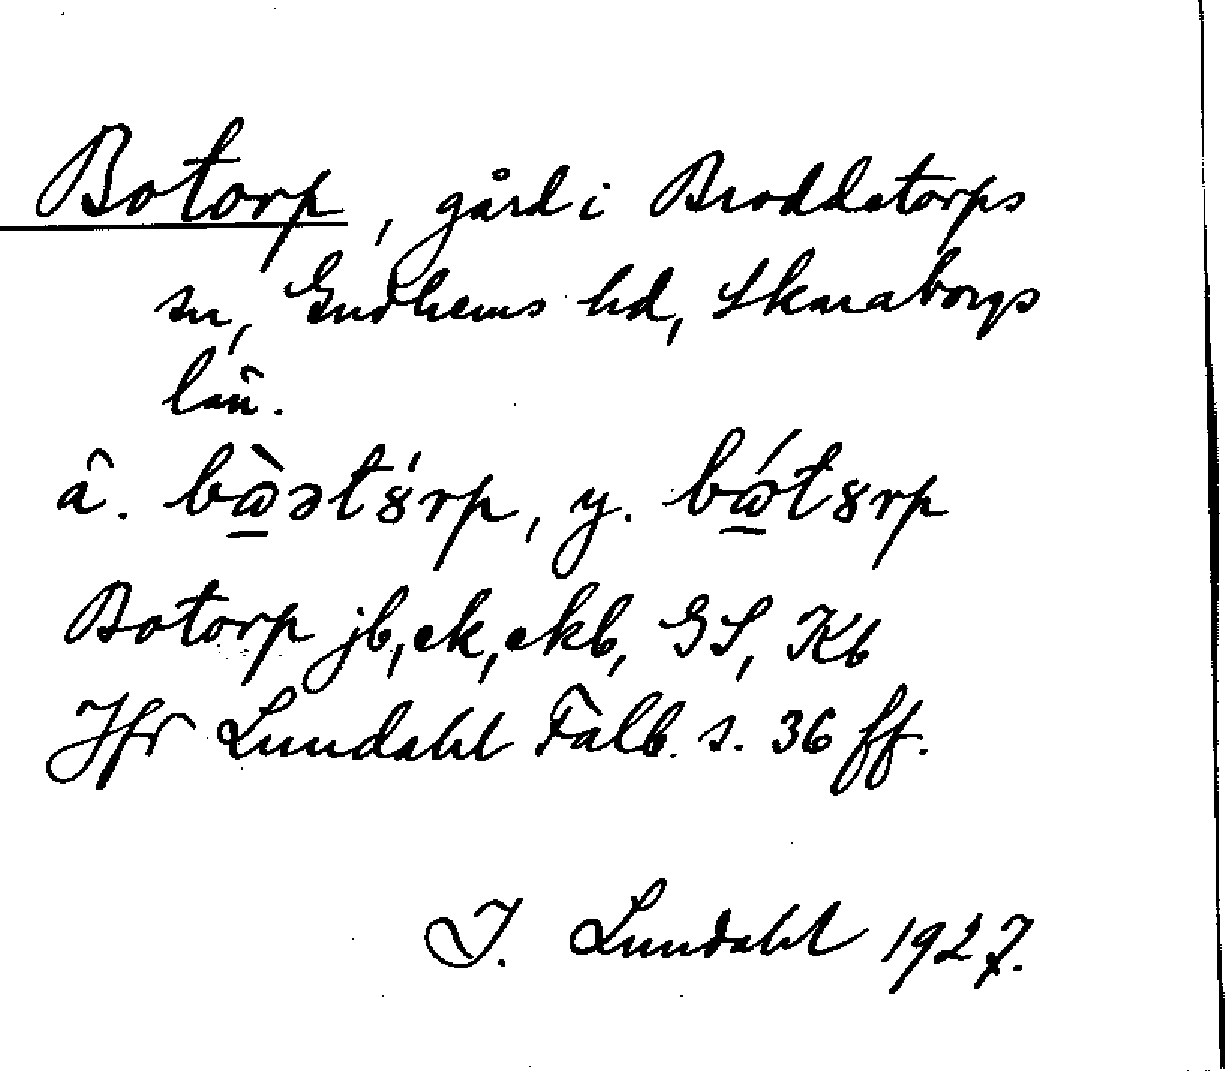 Botorp, gård i Broddetorps
sn, Gudhems hd, Skaraborgs
län.
ä. bὼətȣ́rp, y. bώtȣrp
Botorp jb, ek, ekb, GS, Kb
Jfr Lundahl Falb. s. 36 ff.
I. Lundahl 1927.